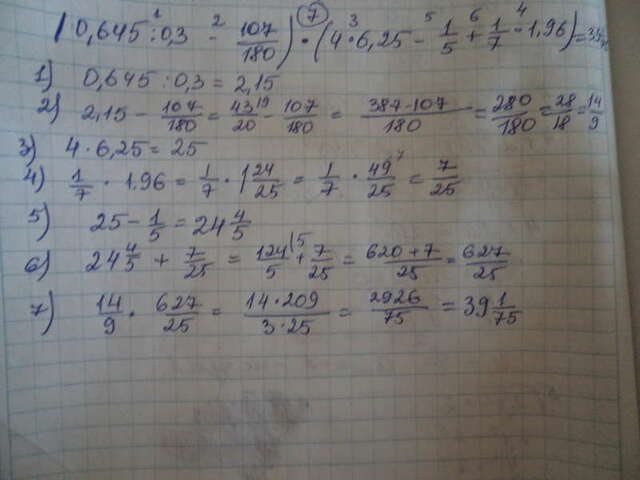 (0,645 : 0,3 - 107/180) · (4 · 6,25 - 1/5 + 1/7 · 1,96) =
1) 0,645 : 0,3 = 2,15
2) 2,15 - 107/180 = 43/20 - 107/180 = 387-107/180 = 280/180 = 28/18 = 14/9
3) 4 · 6,25 = 25
4) 1/7 · 1.96 = 1/7 · 1 24/25 = 1/7 · 49/25 = 7/25
5) 25 - 1/5 = 24 4/5
6) 24 4/5 + 7/25 = 124/5 + 7/25 = 620+7/25 = 627/25
7) 14/9 · 627/25 = 14·209/3·25 = 2926/75 = 39 1/75